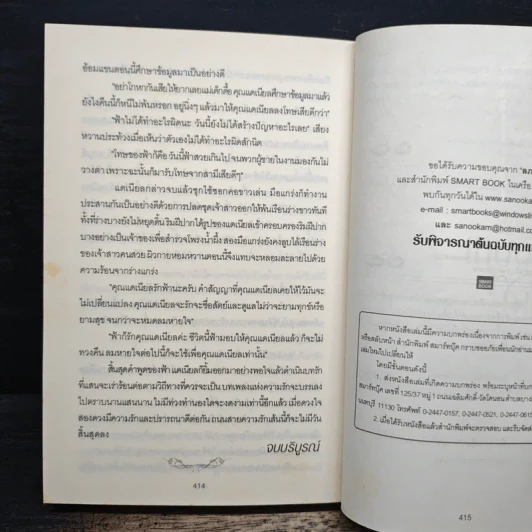 อ้อมแขนตอนนี้ศึกษาข้อมูลมาเป็นอย่างดี
"อย่าโกหกกันเสียให้ยากเลยแม่เด็กดื้อ คุณแดเนียลศึกษาข้อมูลมาแล้ว
ยังไงคืนนี้ก็หนีไม่พ้นหรอก อยู่นิ่งๆ แล้วมาให้คุณแดเนียลลงโทษเสียดีกว่า"
"ฟ้าไม่ได้ทำอะไรผิดนะ วันนี้ยังไม่ได้สร้างปัญหาอะไรเลย" เสียง
หวานประท้วงเมื่อเห็นว่าตัวเองไม่ได้ทำอะไรผิดสักนิด
"โทษของฟ้าก็คือ วันนี้ฟ้าสวยเกินไป จนพวกผู้ชายในงานมองกันไม่
วางตา เพราะฉะนั้นก็มารับโทษจากสามีเสียดีๆ"
แดเนียลกล่าวจบแล้วซุกไซ้ซอกคอขาวเล่น มือแกร่งก็ทำงาน
ประสานกันเป็นอย่างดีด้วยการปลดชุดเจ้าสาวออกให้พ้นเรือนร่างขาวทันที
ทั้งที่ร่างบางยังไม่หยุดดิ้น ริมฝีปากได้รูปของแดเนียลเข้าครอบครองริมฝีปาก
บางอย่างเป็นเจ้าของเพื่อสำรวจโพรงน้ำผึ้ง สองมือแกร่งยังคงลูบไล้เรือนร่าง
ของเจ้าสาวคนสวย ผิวกายหอมหวานตอนนี้จึงแทบจะหลอมละลายไปด้วย
ความร้อนจากร่างแกร่ง
"คุณแดเนียลรักฟ้านะครับ คำสัญญาที่คุณแดเนียลเคยให้ไว้มันจะ
ไม่เปลี่ยนแปลง คุณแดเนียลจะรักจะซื่อสัตย์และดูแลไม่ว่าจะยามทุกข์หรือ
ยามสุข จนกว่าจะหมดลมหายใจ"
"ฟ้าก็รักคุณแดเนียลค่ะ ชีวิตนี้ฟ้ามอบให้คุณแดเนียลแล้ว ก็จะไม่
ทวงคืน ลมหายใจต่อไปนี้ก็จะใช้เพื่อคุณแดเนียลเท่านั้น"
สิ้นสุดคำพูดของฟ้า แดเนียลก็ยิ้มออกมาอย่างพอใจแล้วดำเนินบทรัก
ที่แสนจะเร่าร้อนต่อตามวิถีทางที่ควรจะเป็น บทเพลงแห่งความรักจะบรรเลง
ไปตราบนานแสนนาน ไม่มีท่วงทำนองใดจะงดงามเท่านี้อีกแล้ว เมื่อดวงใจ
สองดวงมีความรักและปรารถนาดีต่อกัน ถนนสายความรักเส้นนี้ก็จะไม่มีวัน
สิ้นสุดลง
จบบริบูรณ์
414
ขอได้รับความขอบคุณจาก
และสำนักพิมพ์ SMART BOOK ในเครือ
พบกันทุกวันได้ใน www.sanook
e-mail : smartbooks@windowsli
และ sanookam@hotmail.co
รับพิจารณาต้นฉบับทุกแ
SMART
BOOK
หากหนังสือเล่มนี้มีความบกพร่องเนื่องจากการพิมพ์ เช่น
หรือสลับหน้า สำนักพิมพ์ สมาร์ทบุ๊ค กราบขออภัยเพื่อนนักอ่าน
เล่มใหม่ไปเปลี่ยนให้
โดยมีขั้นตอนดังนี้
1. ส่งหนังสือเล่มที่เกิดความบกพร่อง พร้อมระบุหน้าที่บก
สมาร์ทบุ๊ค เลขที่ 125/37 หมู่ 1
นนทบุรี 11130 โทรศัพท์ 0-2447-0157, 0-2447-0521, 0-2447-0615
2. เมื่อได้รับหนังสือแล้วสำนักพิมพ์จะตรวจสอบ และรีบจัดส่ง
415